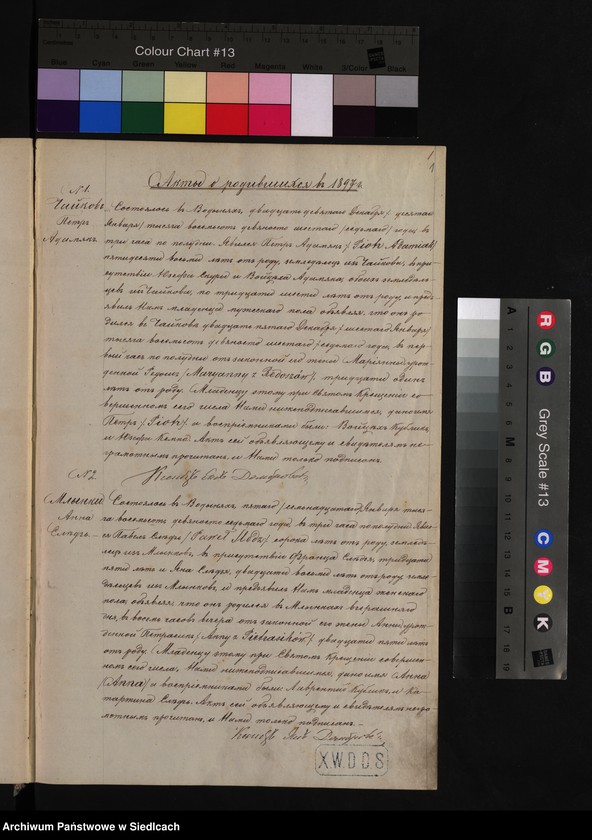 Colour Chart #13
Blue Cyan Green Yellow Red Magenta White 3/Color Black
Акты о родившихся въ 1897 г.
1
N 1.
Чайковъ
Петръ
Адамякъ
Состоялось въ Водыняхъ двадцать девятаго Декабря / десятаго
Января / тысяча восемьсотъ девяносто шестаго / седьмаго / года въ
три часа по полудни. Явился Петръ Адамякъ / Piotr Adamiak /
пятидесяти восьми лѣтъ отъ роду, земледѣлецъ изъ Чайкова, въ при-
сутствіи и Войцѣха Адамяка, обоихъ земледѣль-
цевъ изъ Чайкова, по тридцати шести лѣтъ отъ роду, и предъ-
явилъ Намъ младенца мужескаго пола объявляя, что онъ ро-
дился въ Чайкове двадцать пятаго Декабря / шестаго Января /
тысяча восемьсотъ девяносто шестаго / седьмаго года, въ пер-
вый часъ по полудни отъ законной его жены Маріанны урож-
денной / Maryanny z / тридцати одинъ
лѣтъ отъ роду. Младенцу этому при Святомъ Крещеніи со-
вершенномъ сего числа Нами нижеподписавшимся, дано имя
Петръ / Piotr / и воспріемниками были: Войцѣхъ Кубликъ
и Акт сей объявляющему и свидѣтелямъ не-
грамотнымъ прочитанъ, и Нами только подписанъ.
Ксендзъ
N 2.
Млынки
Анна
Состоялось въ Водыняхъ пятаго / семнадцатаго Января тыся-
ча восемьсотъ девяносто седьмаго года, въ три часа по полудни. Явил-
ся Павелъ / Paweł / сорока лѣтъ отъ роду, земледѣ-
лецъ изъ Млынковъ, въ присутствіи Франца тридцати
пяти лѣтъ и Яна двадцати восьми лѣтъ отъ роду, земле-
дѣльцевъ изъ Млынковъ, и предъявилъ Намъ младенца женскаго
пола, объявляя, что онъ родился въ Млынкахъ вчерашняго
дня, въ восемь часовъ вечера отъ законной его жены Анны урож-
денной Петрасикъ / Anny z Pietrasików / двадцати пяти лѣтъ
отъ роду. Младенцу этому при Святомъ Крещеніи совершен-
номъ сего числа, Нами нижеподписавшимся, дано имя Анна
/ Anna / и воспріемниками были Лаврентій Кубликъ и Ка-
таржина Актъ сей объявляющему и свидѣтелямъ негра-
мотнымъ прочитанъ, и Нами только подписанъ.
Ксендзъ
X.W.D.D.S
Grey Scale #13
R G B
C M Y K
A 1 2 3 4 5 6 M 8 9 10 11 12 13 14 15 B 17 18 19
Archiwum Państwowe w Siedlcach